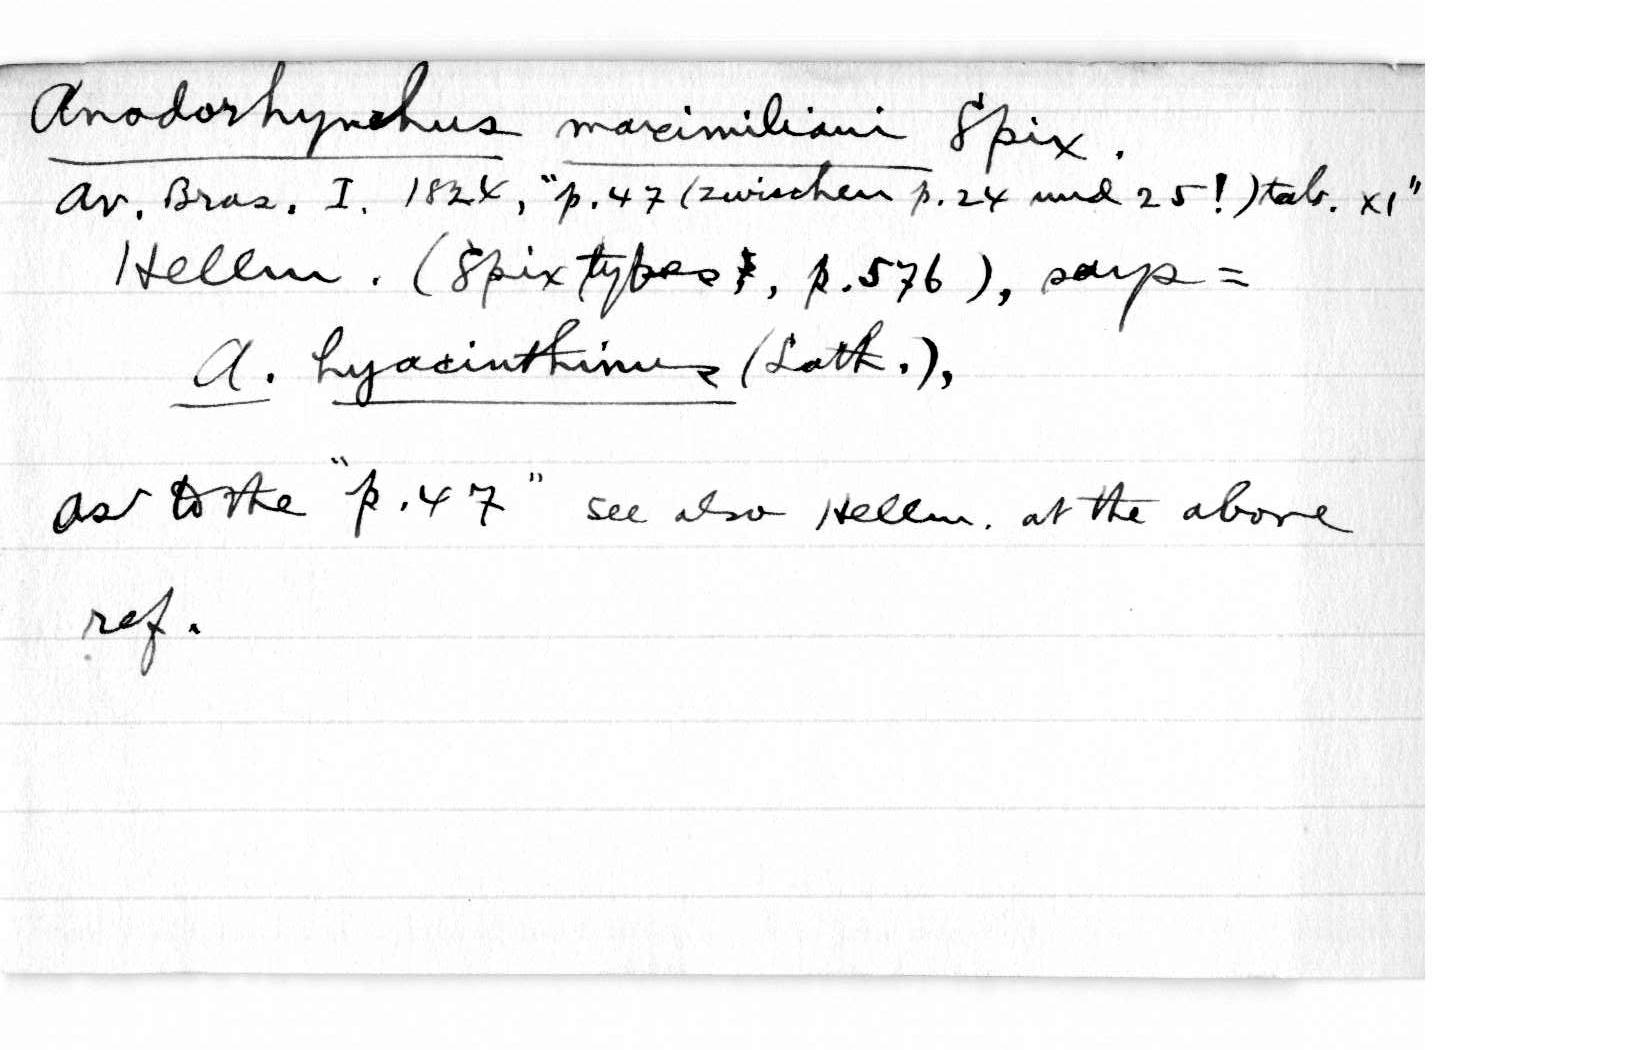 Anodorhynchus maximiliani Spix.
Av. Bras. I. 1824, "p.47 (zwischen p.24 und 25!) tab. XI"
Hellm. (Spix types, p.576), says =
A. hyacinthinus (Lath.),
as to the "p.47" see also Hellm. at the above
ref.